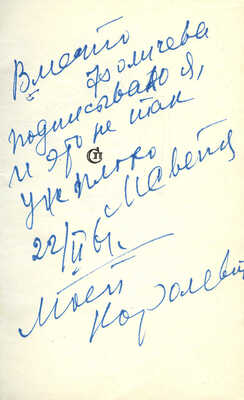 Вместо
Фоличева
подписываю я,
и это не так
уж плохо
МСветл
22/VI 61.
Моей
Королеве